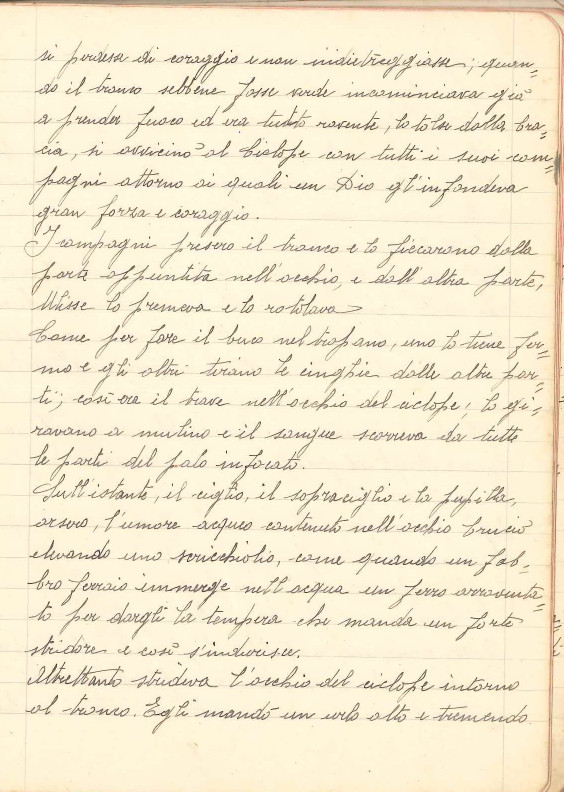 si perdesse di coraggio e non indietreggiasse; quan=
do il tronco sebbene fosse verde incominciava già
a prender fuoco ed era tutto rovente, lo tolse dalla bra=
cia, si avvicinò al Ciclope con tutti i suoi com=
pagni attorno ai quali un Dio gl'infondeva
gran forza e coraggio.
I compagni presero il tronco e lo ficcarono dalla
parte appuntita nell'occhio, e dall'altra parte,
Ulisse lo premeva e lo rotolava
Come per fare il buco nel trapano, uno lo tiene fer=
mo e gli altri tirano le cinghie dalle altre par=
ti; così era il trave nell'occhio del ciclope; lo gi=
ravano a mulino e il sangue scorreva da tutte
le parti del palo infocato.
Sull'istante, il ciglio, il sopraciglio e la pupilla,
arsero, l'umore acqueo contenuto nell'occhio bruciò
elevando uno scricchiolio, come quando un fab=
bro ferraio immerge nell'acqua un ferro arroventa=
to per dargli la tempera che manda un forte
stridore e così s'indurisce.
Altrettanto strideva l'occhio del ciclope intorno
al tronco. Egli mandò un urlo alto e tremendo